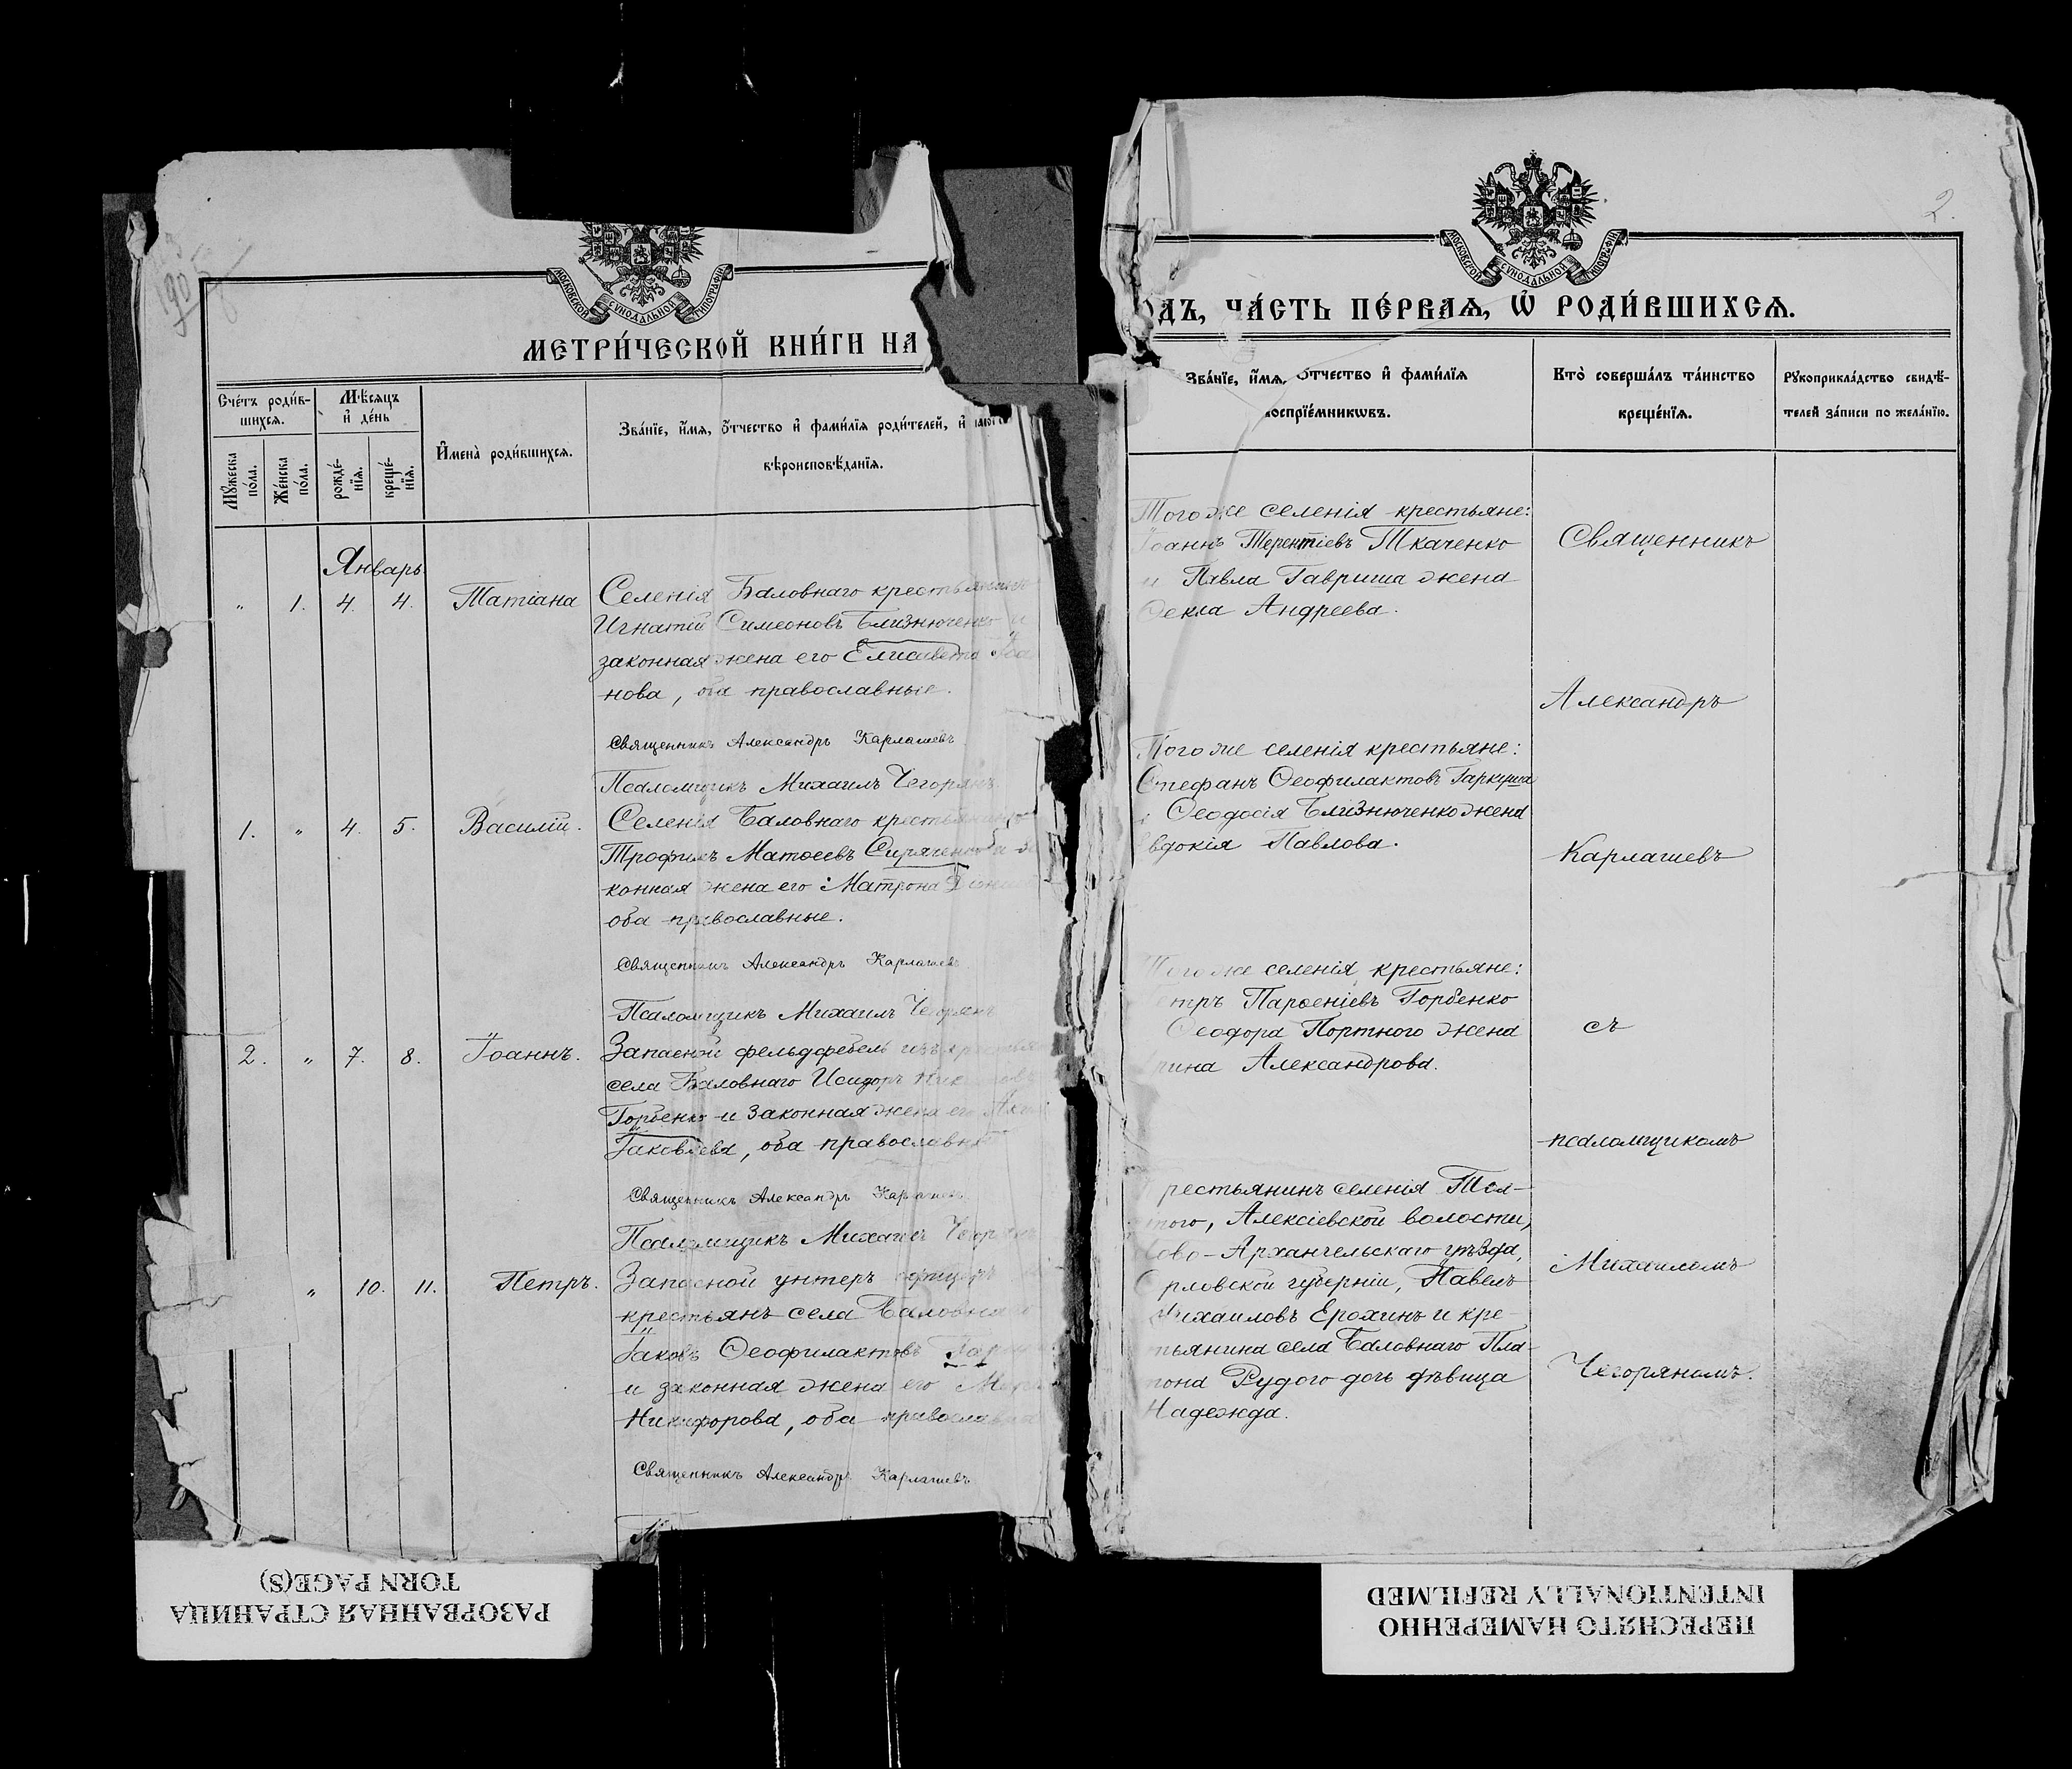 2.
МОСКОВСКОЙ СУНОДАЛЬНОЙ ТИПОГРАФІИ
МЕТРИ́ЧЕСКОЙ КНИ́ГИ НА
Сче́тъ роди́в-
шихся.
Мѣ́сяцъ
и҆ де́нь
Мꙋ́жеска по́ла.
Же́нска по́ла.
рожде́-
нїя.
креще́-
нїя.
И҆мена̀ роди́вшихся.
Зва́нїе, и҆́мя, о҆́тчество и҆ фами́лїя роди́телей, и҆
вѣроисповѣ́данїя.
Январь
" 1. 4. 4. Татіана
Селенія Баловнаго крестьянинъ
Игнатій Симеоновъ Близнюченко и
законная жена его Елисавета Іоа
нова, оба православные.
Священникъ Александръ Карлашевъ
Псаломщикъ Михаилъ Чегорянъ
1. " 4. 5. Василій.
Селенія Баловнаго крестьянинъ
Трофимъ Матѳеевъ Сиряченко и за
конная жена его Матрона
оба православные.
Священникъ Александръ Карлашевъ
Псаломщикъ Михаилъ Чегорянъ
2. " 7. 8. Іоаннъ.
Запасной фельдфебель изъ крестьян
села Баловнаго Исидоръ
Горбенко и законная жена его
Іаковлева, оба православные
Священникъ Александръ Карлашевъ
Псаломщикъ Михаилъ Чегорянъ
" 10. 11. Петръ.
Запасной унтеръ офицеръ
крестьянъ села Баловнаго
Іаковъ Ѳеофилактовъ
и законная жена его
Никифорова, оба православные
Священникъ Александръ Карлашевъ
МОСКОВСКОЙ СУНОДАЛЬНОЙ ТИПОГРАФІИ
ОДЪ, ЧА́СТЬ ПЕ́РВАЯ, Ѡ҆ РОДИ́ВШИХСЯ.
Зва́нїе, и҆́мя, о҆́тчество и҆ фами́лїя
воспрїе́мникѡвъ.
Кто̀ соверша́лъ та́инство
креще́нїя.
Рꙋкоприкла́дство свидѣ́-
телей за́писи по жела́нїю.
Тогоже селенія крестьяне:
Іоаннъ Терентіевъ Ткаченко
и Павла Гавриша жена
Ѳекла Андреева.
Тогоже селенія крестьяне:
Стефанъ Ѳеофилактовъ Гаркуша
и Ѳеодосія Близнюченко жена
Евдокія Павлова.
Тогоже селенія крестьяне:
Петръ Парѳеніевъ Горбенко
Ѳеодора Портного жена
рина Александрова.
Крестьянинъ селенія Теп-
того, Алексіевской волости,
Ново-Архангельскаго уѣзда,
Орловской губерніи, Павелъ
Михаиловъ Ерохинъ и кре-
тьянина села Баловнаго Пла-
тона Рудого дочь дѣвица
Надежда.
Священникъ
Александръ
Карлашевъ
съ
псаломщикомъ
Михаиломъ
Чегоряномъ.
РАЗОРВАННАЯ СТРАНИЦА
TORN PAGE(S)
ПЕРЕСНЯТО НАМЕРЕННО
INTENTIONALLY REFILMED